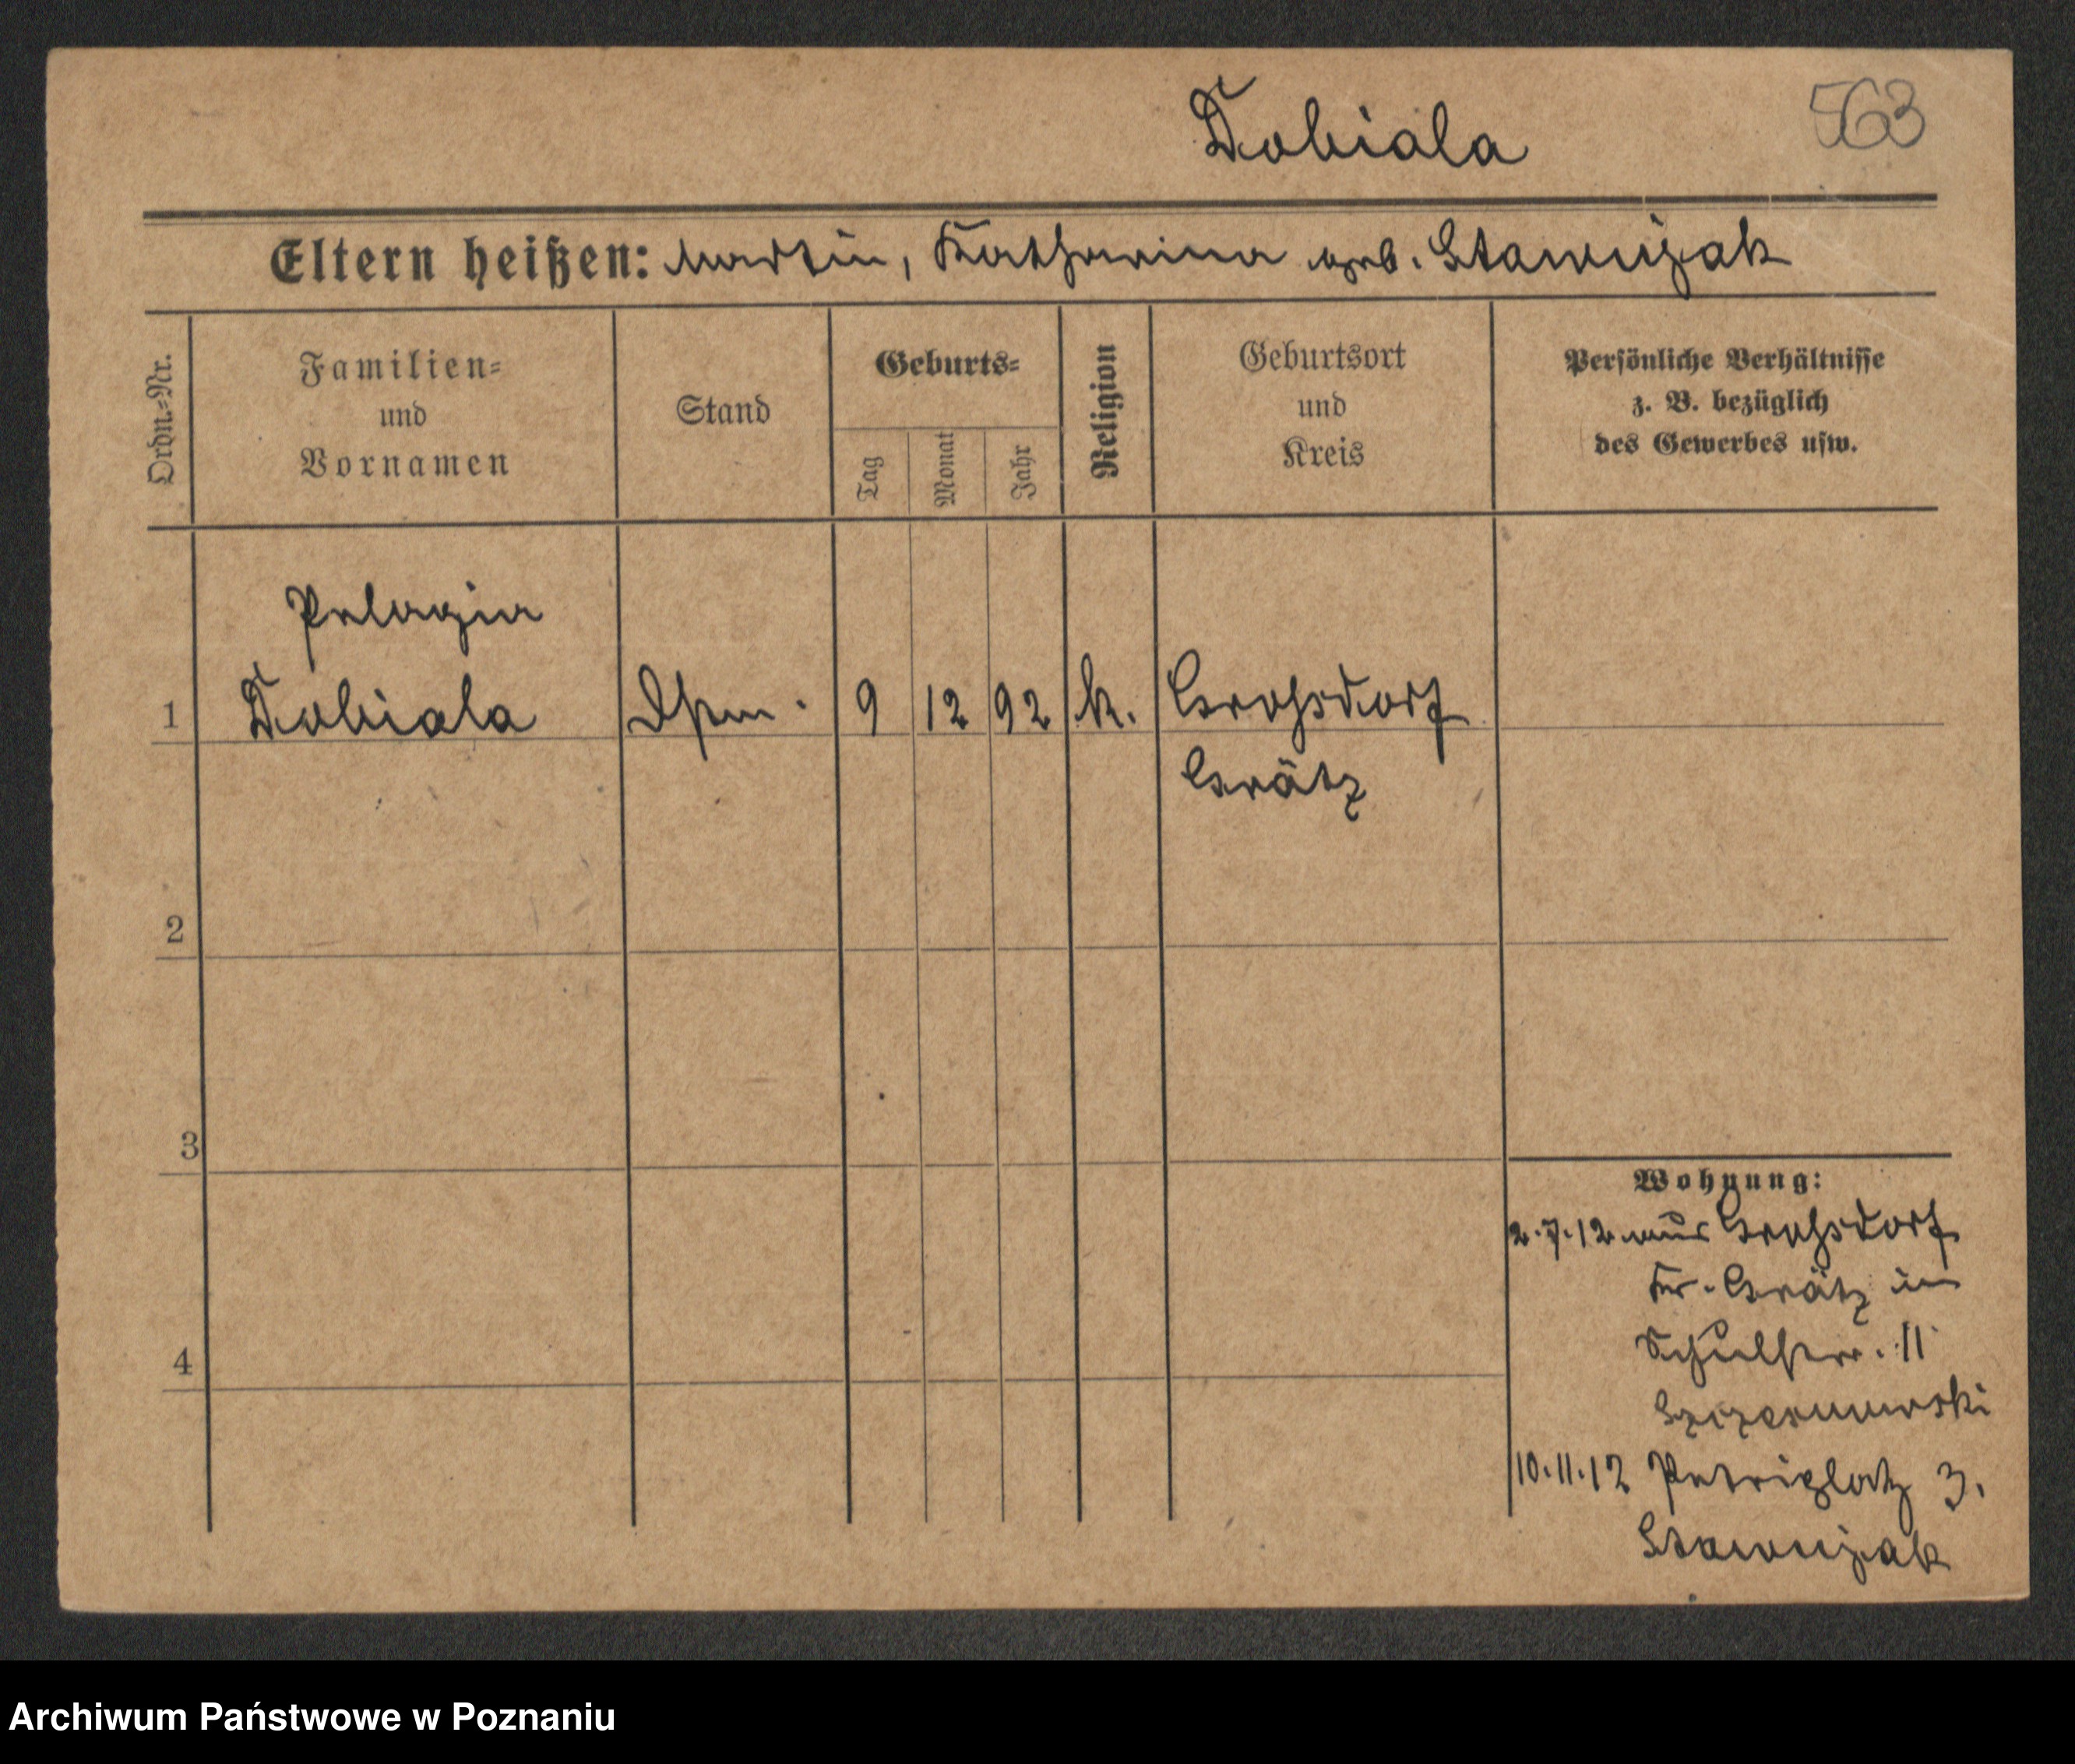 Dobiala 563
Eltern heißen: Martin, Katharina geb. Stawujak
Ordn.=Nr.
Familien=
und
Vornamen
Stand
Geburts=
Tag
Monat
Jahr
Religion
Geburtsort
und
Kreis
Persönliche Verhältnisse
z. B. bezüglich
des Gewerbes usw.
Pelagia
1 Dobiala 9 12 92 k. Grossdorf
Grätz
2
3
4
Wohnung:
2.7.12 aus Grossdorf
Kr. Grätz in
Schulstr. 11
10.11.12 Petriplatz 3.
Stawujak
Archiwum Państwowe w Poznaniu